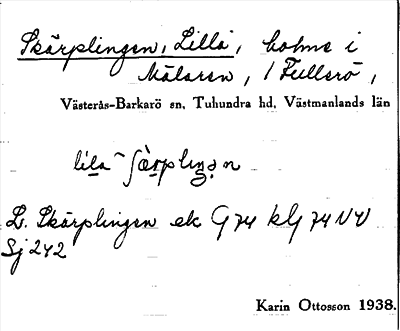 Skärplingen, Lilla, holme i
Mälaren, / Fullerö,
Västerås-Barkarö sn, Tuhundra hd, Västmanlands län
lila
L. Skärplingen ek G 74 kG 74 NV
Sj 242
Karin Ottosson 1938.